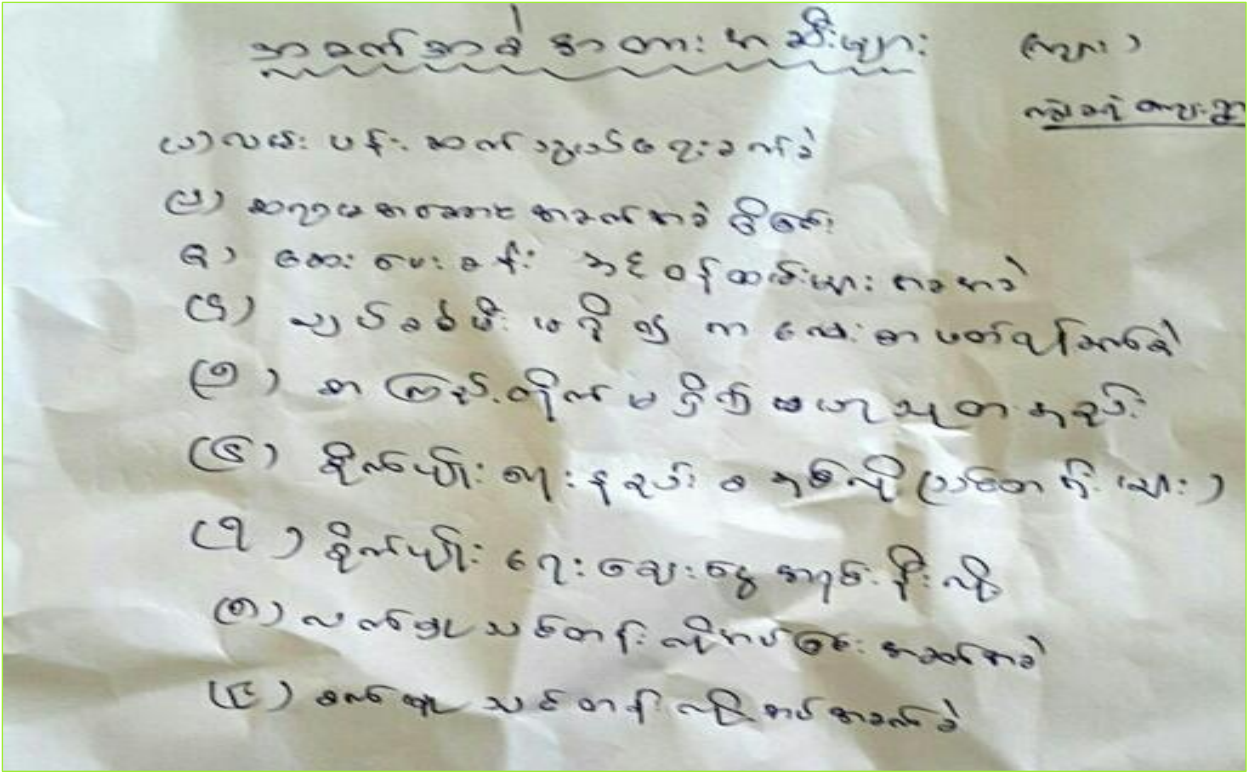 အခက်အခဲ အတားအဆီးများ (ကျား)
ကျေးရွာ
(၁) လမ်းပန်း ဆက်သွယ်ရေးခက်ခဲ
(၂) ဆရာမ အဆောင် အခက်အခဲ ရှိခြင်း
(၃) ဆေးပေးခန်း နှင့် ဝန်ထမ်းများ အခက်ခဲ
(၄) လျှပ်စစ်မီး မရှိ၍ ကလေးစာဖတ်ရခက်ခဲ
(၅) စာကြည့်တိုက် မရှိ၍ ဗဟုသုတ နည်း
(၆) စိုက်ပျိုးရေး နည်းစနစ်လို (သင်တန်းများ)
(၇) စိုက်ပျိုးရေး ချေးငွေ အရင်းနှီးလို
(၈) လက်မှု သင်တန်းလိုအပ်ခြင်း အခက်အခဲ
(၉) စက်မှု သင်တန်း လိုအပ်အခက်ခဲ